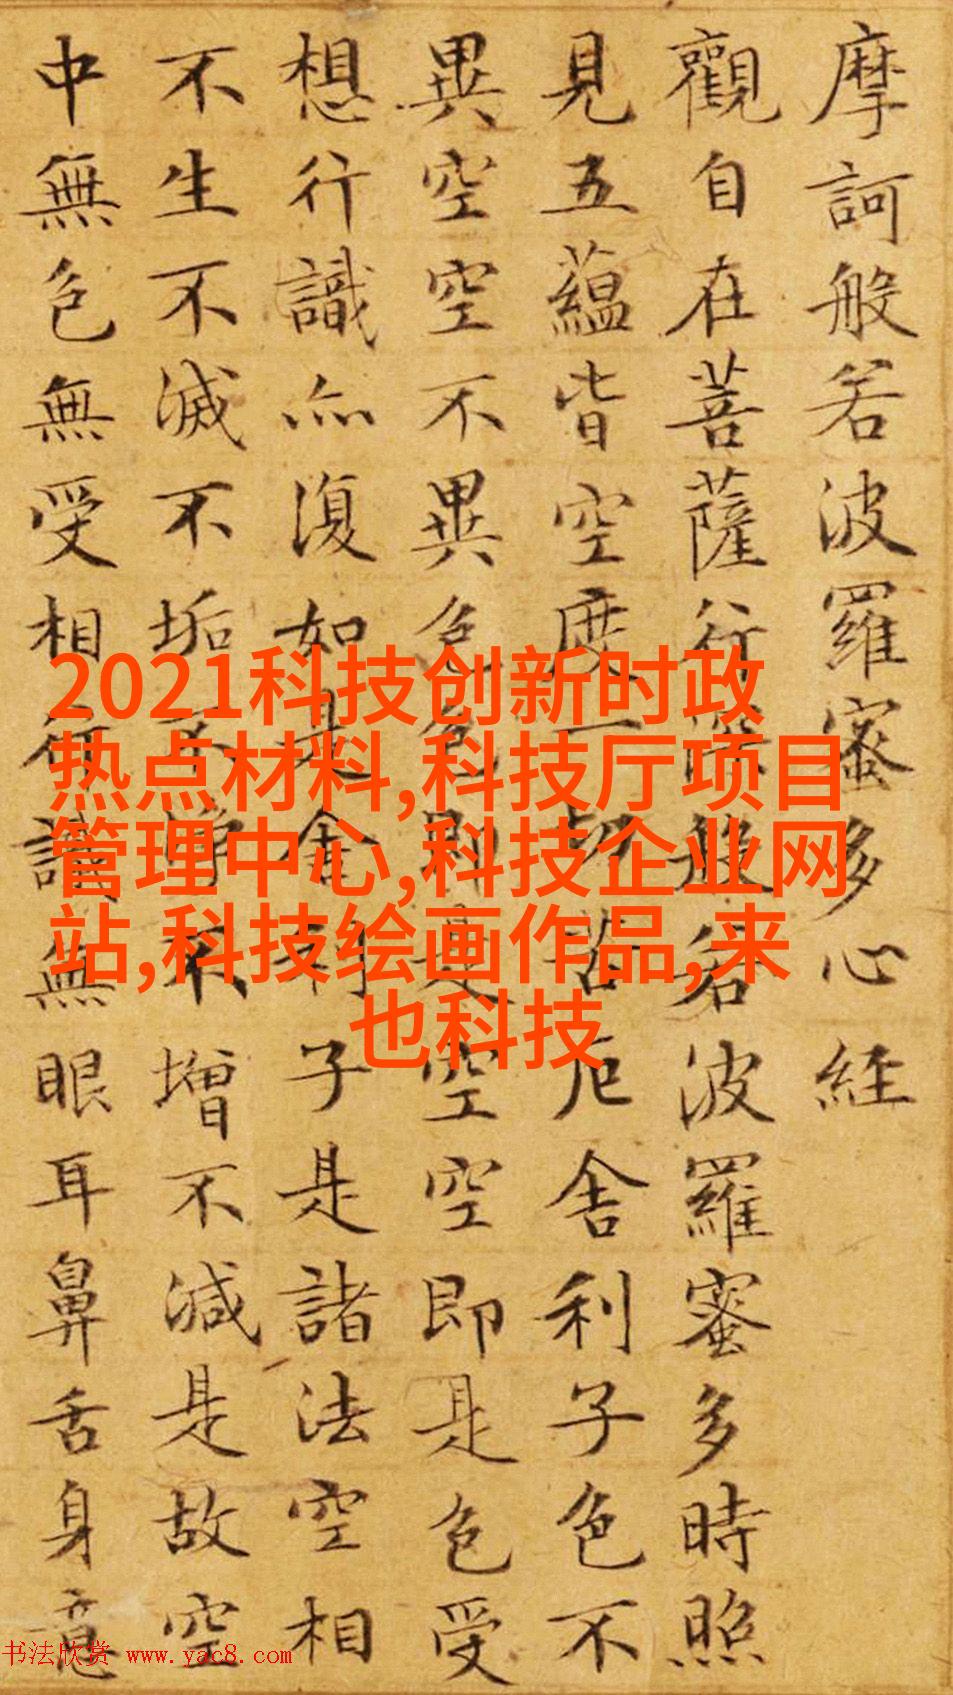 摩訶般若波羅蜜多心經
觀自在菩薩行深般若波羅蜜多時照
見五藴皆空度一切苦厄舍利子色不
異空空不異色色即是空空即是色受
想行識亦復如是舍利子是諸法空相
不生不滅不垢不淨不增不減是故空
中無色無受相行識無眼耳鼻舌身意
2021科技创新时政
热点材料,科技厅项目
管理中心,科技企业网
站,科技绘画作品,来
也科技
书法欣赏 www.yac8.com